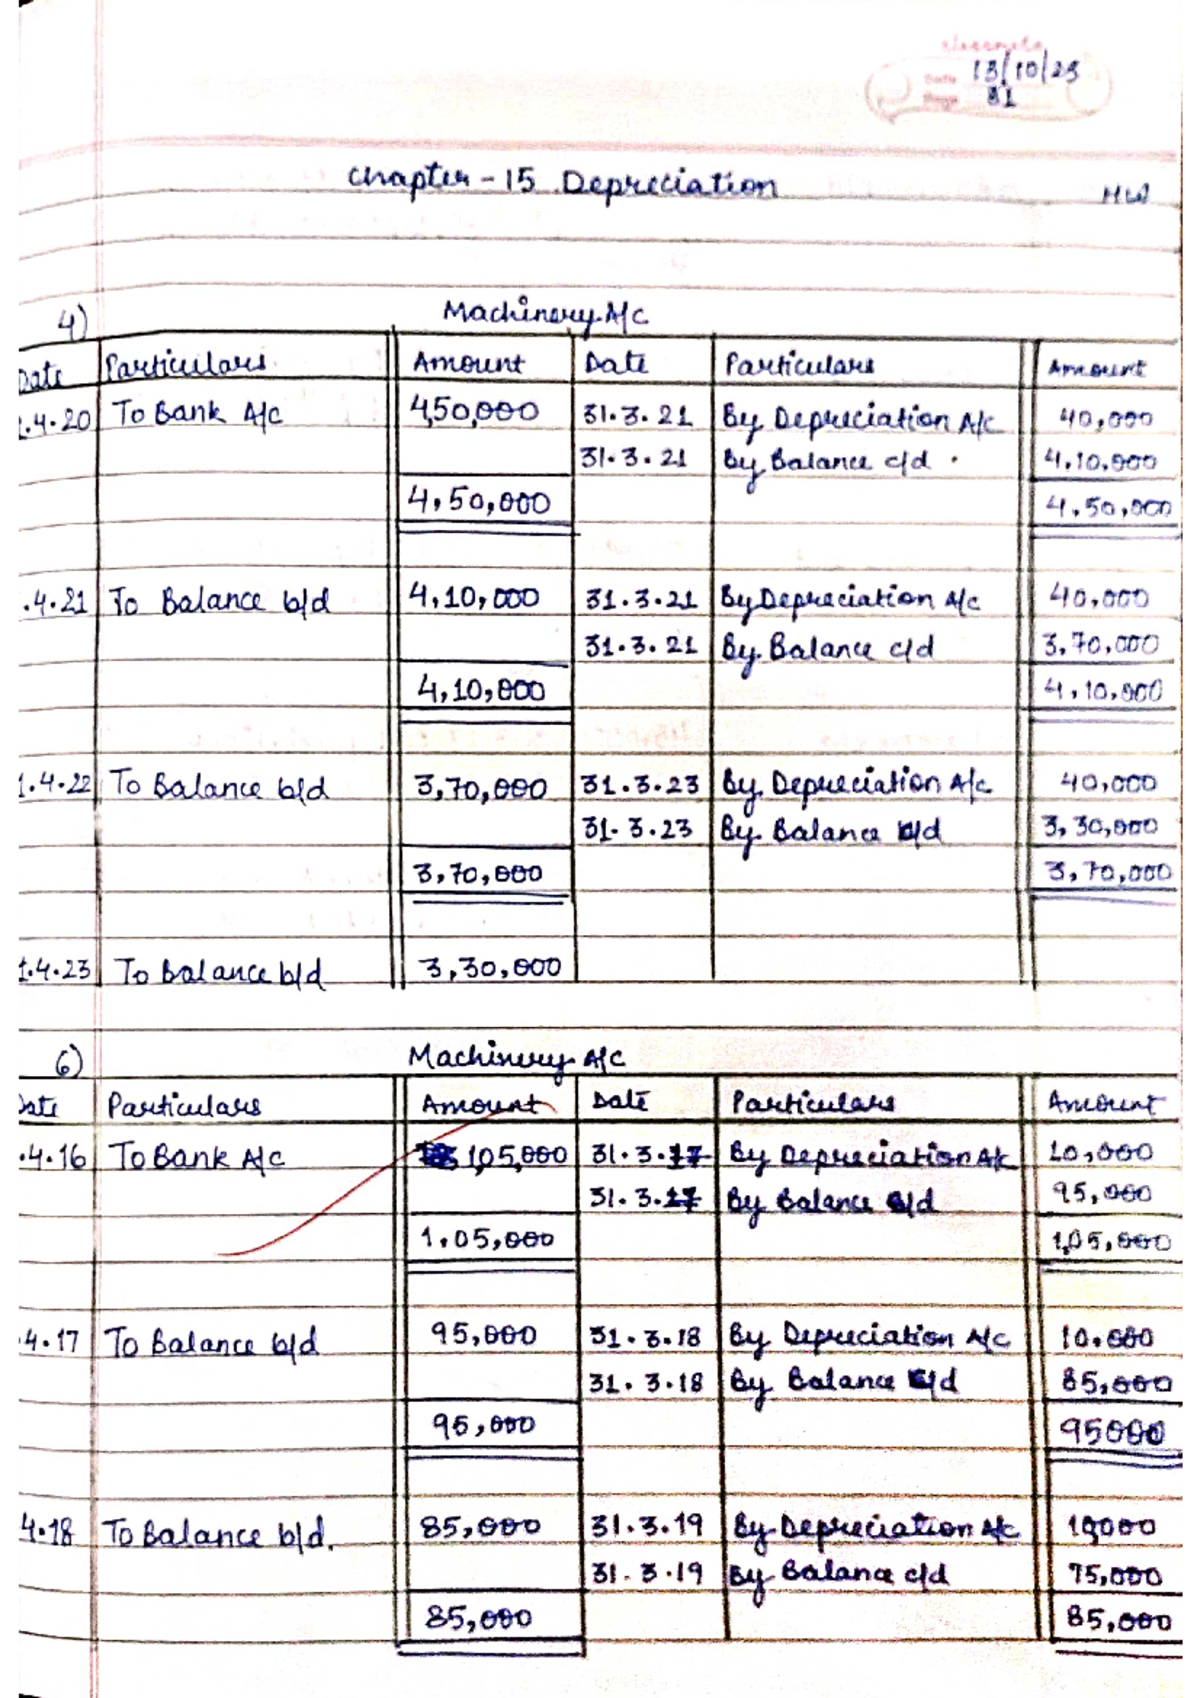 classmate
Date 13/10/23
Page 81
Chapter - 15 Depreciation HW
4) Machinery A/c
Date Particulars Amount Date Particulars Amount
1.4.20 To Bank A/c 4,50,000 31.3.21 By Depreciation A/c 40,000
31.3.21 By Balance c/d 4,10,000
4,50,000 4,50,000
.4.21 To Balance b/d 4,10,000 31.3.21 By Depreciation A/c 40,000
31.3.21 By Balance c/d 3,70,000
4,10,000 4,10,000
1.4.22 To Balance b/d 3,70,000 31.3.23 By Depreciation A/c 40,000
31.3.23 By Balance c/d 3,30,000
3,70,000 3,70,000
1.4.23 To Balance b/d 3,30,000
6) Machinery A/c
Date Particulars Amount Date Particulars Amount
.4.16 To Bank A/c 1,05,000 31.3.17 By Depreciation A/c 10,000
31.3.17 By Balance c/d 95,000
1,05,000 1,05,000
.4.17 To Balance b/d 95,000 31.3.18 By Depreciation A/c 10,000
31.3.18 By Balance c/d 85,000
95,000 95000
4.18 To Balance b/d. 85,000 31.3.19 By Depreciation A/c 10,000
31.3.19 By Balance c/d 75,000
85,000 85,000